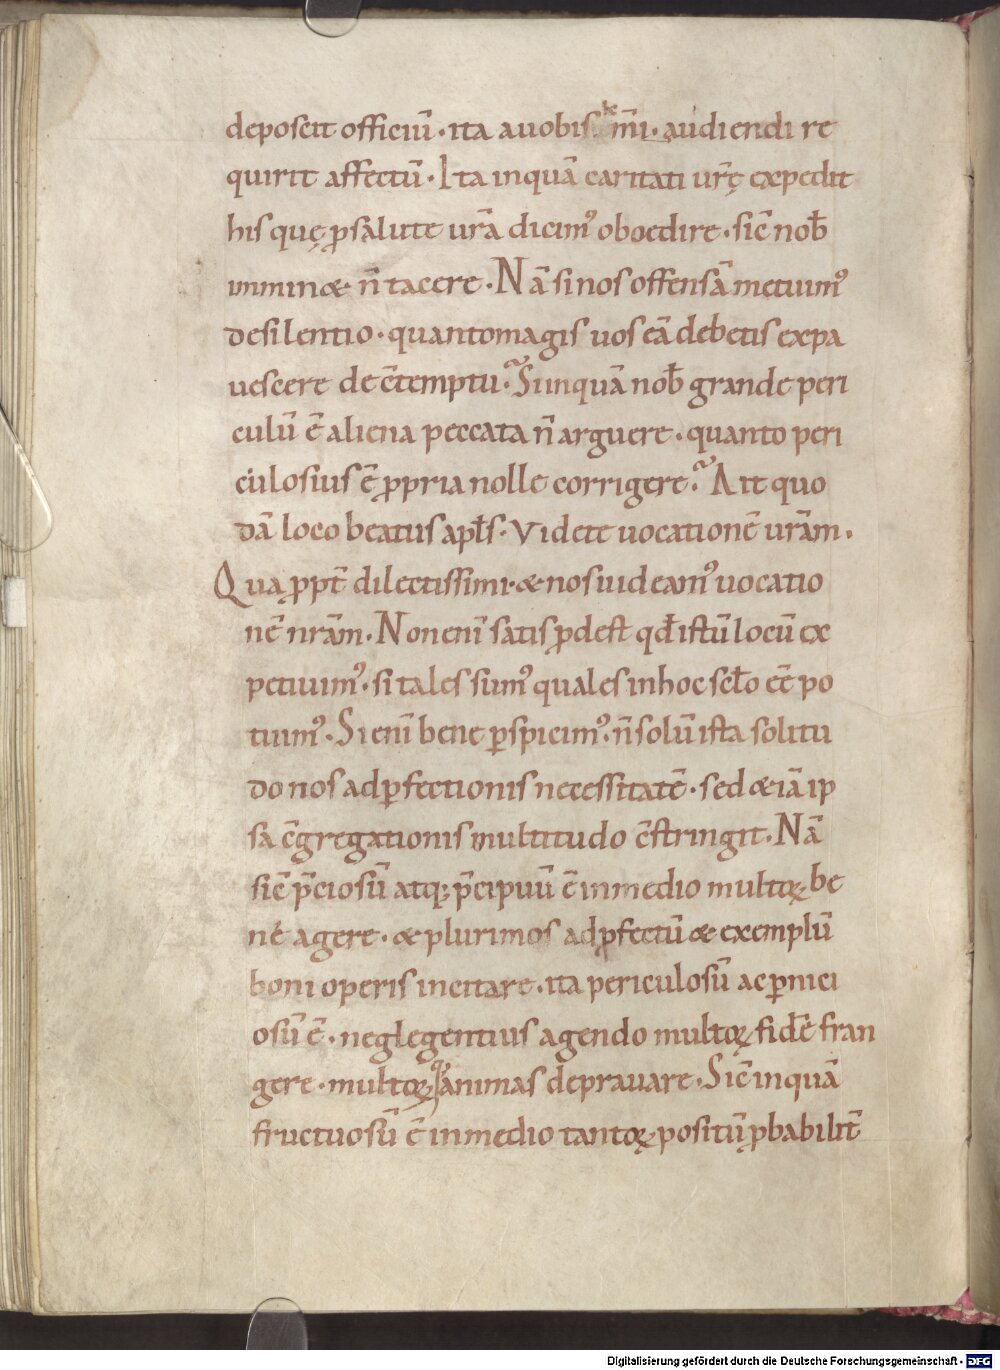 deposcit officiū · ita auobis k̅mi · audiendi re
quirit affectū · Ita inquā caritati urę̄ expedit
his quę ꝓ salute urā dicim᾿ oboedire · sic̄ nob̄
imminet n̄ tacere · Nā si nos offensā metuim᾿
de silentio · quantomagis uos eā debetis expa
uescere de c̄temptu · Si inquā nob̄ grande peri
culū ē aliena peccata n̄ arguere · quanto peri
culosius ē ꝓpria nolle corrigere · Ait quo
dā loco beatus apl̄s · Videte uocationē urām ·
Qua ꝓpt̄ dilectissimi · & nos uideam᾿ uocatio
nē nrām · Non enī satis ꝓdest qđ istū locū ex
petiuim᾿ · si tales sum᾿ quales in hoc scl̄o eē po
tuim᾿ · Si enī bene ꝑspicim᾿ · n̄ solū ista solitu
do nos ad ꝑfectionis necessitatē · sed &iā ip
sa c̄gregationis multitudo c̄stringit · Nā
sic̄ p̄ciosū atq; p̄cipuū ē in medio multoꝝ be
ne agere · & plurimos ad ꝓfectū & exemplū
boni operis incitare · ita periculosū ac ꝑnici
osū ē · neglegentius agendo multoꝝ fidē fran
gere · multoꝝ q; animas deprauare · Sic̄ inquā
fructuosū ē in medio tantoꝝ positū ꝓbabilit̄
Digitalisierung gefördert durch die Deutsche Forschungsgemeinschaft - DFG